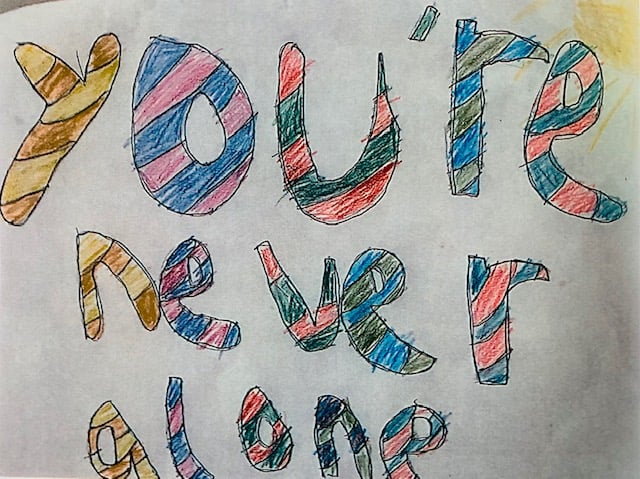 you're
never
alone